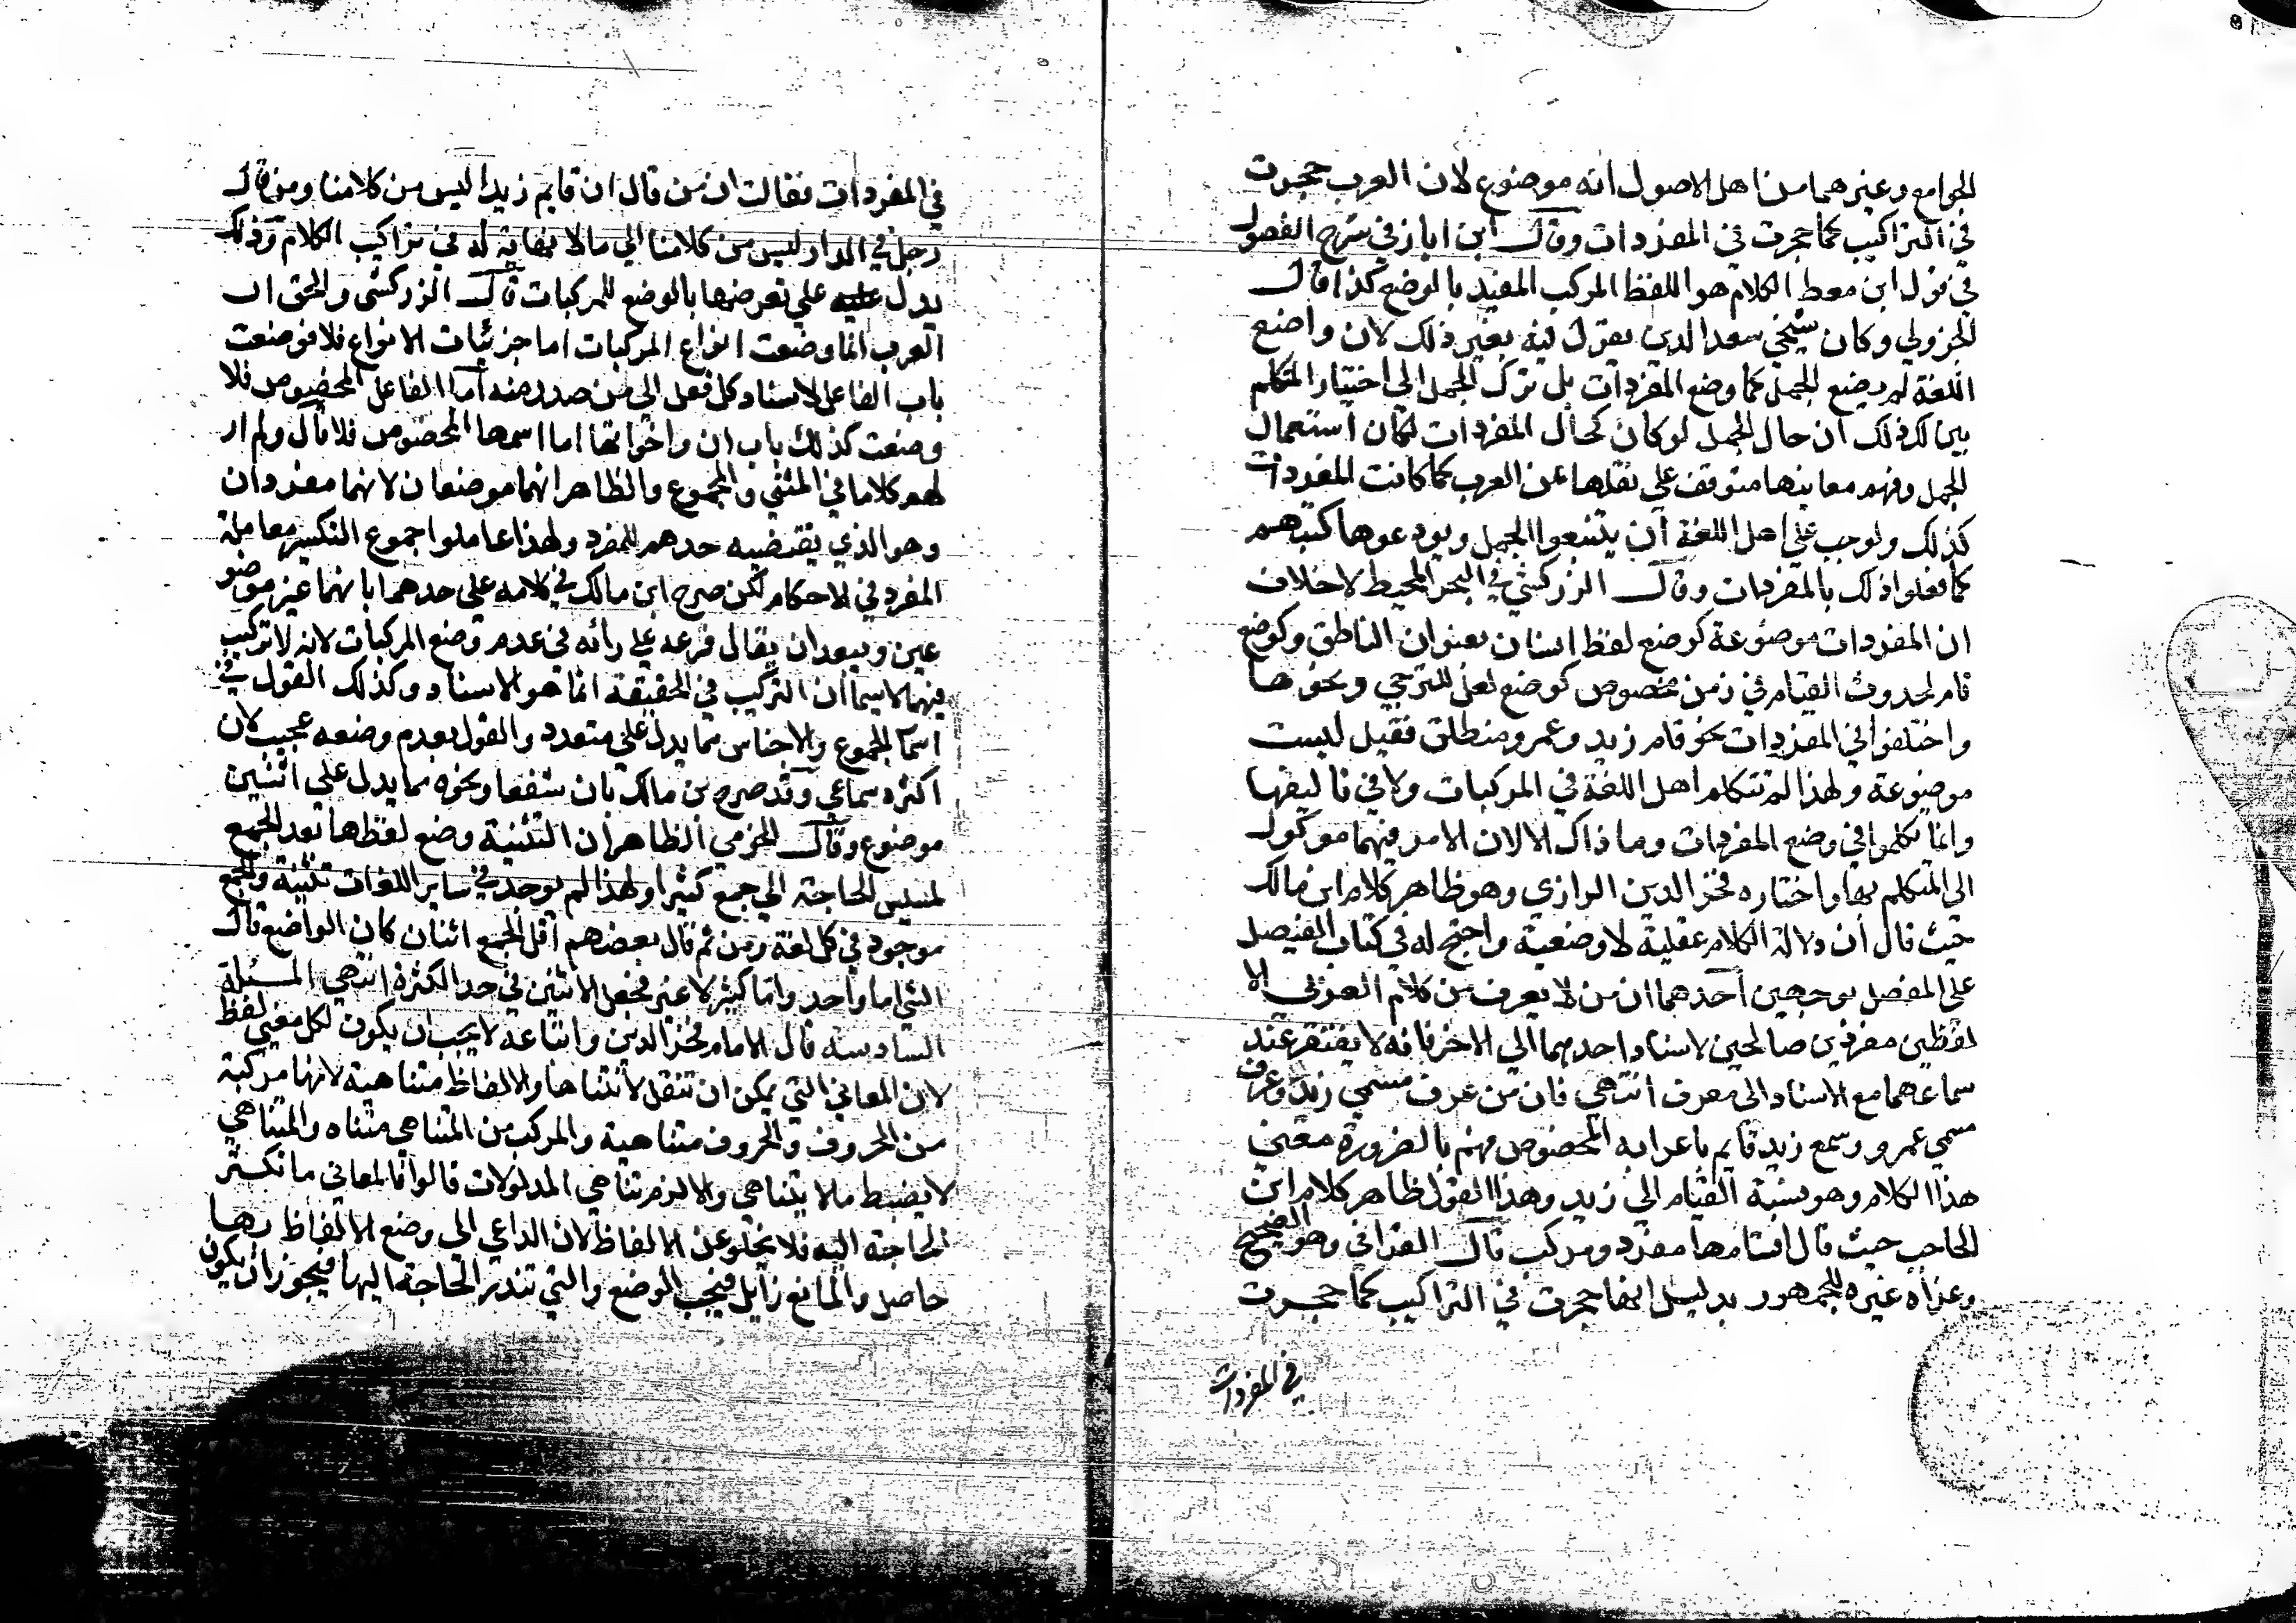 الجوامع وغيرهما من اهل الاصول انه موضوع لان العرب حجرت
في التراكيب كما حجرت في المفردات وقال ابن اياز في شرح الفصول
في قول ابن معط الكلام هو اللفظ المركب المفيد بالوضع كذا قال
الجزولي وكان شيخي سعد الدين يقول فيه بغير ذلك لان واضع
اللغة لم يضع الجمل كما وضع المفردات بل ترك الجمل الي اختيار المتكلم
يبين لك ذلك ان حال الجمل لو كان كحال المفردات لكان استعمال
الجمل وفهم معانيها متوقف علي نقلها عن العرب كما كانت المفردات
كذلك ولوجب علي اهل اللغة ان يتتبعوا الجمل ويودعوها كتبهم
كما فعلوا ذلك بالمفردات وقال الزركشي في البحر المحيط لا خلاف
ان المفردات موضوعة كوضع لفظ انسان بعنوان الناطق وكوضع
قام لحدوث القيام في زمن مخصوص كوضع لعل للترجي ونحوها
واختلفوا في المفردات نحو قام زيد وعمرو منطلق فقيل ليست
موضوعة ولهذا لم تتكلم اهل اللغة في المركبات ولا في تاليفها
وانما تكلموا في وضع المفردات وما ذاك الا لان الامر فيهما موكول
الي المتكلم بها واختاره فخر الدين الرازي وهو ظاهر كلام ابن مالك
حيث قال ان دلالة الكلام عقلية لا وضعية واحتج له في كتاب الفيصل
علي المفصل بوجهين احدهما ان من لا يعرف من كلام العرب الا
لفظين مفردين صالحين لاسناد احدهما الي الاخر فانه لا يفتقر عند
سماعهما مع الاسناد الي معرف انتهي فان من عرف مسمي زيد وعرف
مسمي عمرو وسمع زيد قايم باعرابه المخصوص فهم بالضرورة معني
هذا الكلام وهو نسبة القيام الي زيد وهذا القول ظاهر كلام ابن
الحاجب حيث قال اقسامها مفرد ومركب قال القرافي وهو الصحيح
وعزاه غيره للجمهور بدليل انها حجرت في التراكيب كما حجرت
في المفردات
في المفردات فقالت ان من قال ان قايم زيدا ليس من كلامنا ومن قال
رجل في الدار ليس من كلامنا الي مالا نهاية له في تراكيب الكلام وذلك
يدل عليه علي تعرضها بالوضع للمركبات قال الزركشي والحق ان
العرب انما وضعت انواع المركبات اما جزئيات الانواع فلا فوضعت
باب الفاعل لاسناد كل فعل الي من صدر منه اما الفاعل المخصوص فلا
وضعت كذلك باب ان واخواتها اما اسمها المخصوص فلا قال ولم ار
لهم كلاما في المثني والمجموع والظاهر انهما موضوعان لانهما مفردان
وهو الذي يقتضيه حدهم للمفرد ولهذا عاملوا جموع التكسير معاملة
المفرد في الاحكام لكن صرح ابن مالك في كلامه علي حدهما بانهما غير موضو
عين ويبعد ان يقال فرعه علي رائه في عدم وضع المركبات لانه لا تركيب
فيهما لاسيما ان التركيب في الحقيقة انما هو الاسناد وكذلك القول في
اسما الجموع والاجناس مما يدل علي متعدد والقول بعدم وضعه عجيب لان
اكثره سماعي وقد صرح بن مالك بان شفعا ونحوه مما يدل علي اثنين
موضوع وقال الجزمي الظاهر ان التثنية وضع لفظها بعد الجمع
لمسيس الحاجة الي جمع كثيرا ولهذا لم يوجد في ساير اللغات تثنية والجمع
موجود في كل لغة ومن ثم قال بعضهم اقل الجمع اثنان كان الواضع قال
الشي اما واحد واما كثير لا غير فجعل الاثنين في حد الكثرة انتهي المسئلة
السادسة قال الامام فخر الدين واتباعه لا يجب ان يكون لكل معني لفظ
لان المعاني التي يمكن ان تنقل لا تتناها والالفاظ متناهية لانها مركبة
من الحروف والحروف متناهية والمركب من المتناهي متناه والمتناهي
لا يضبط ما لا يتناهي والا لزم تناهي المدلولات قالوا فالمعاني ما تكثر
الحاجة اليه فلا يخلو عن الالفاظ لان الداعي الي وضع الالفاظ بها
حاصل والمانع زايل فيجب الوضع والتي تندر الحاجة اليها فيجوز ان يكون